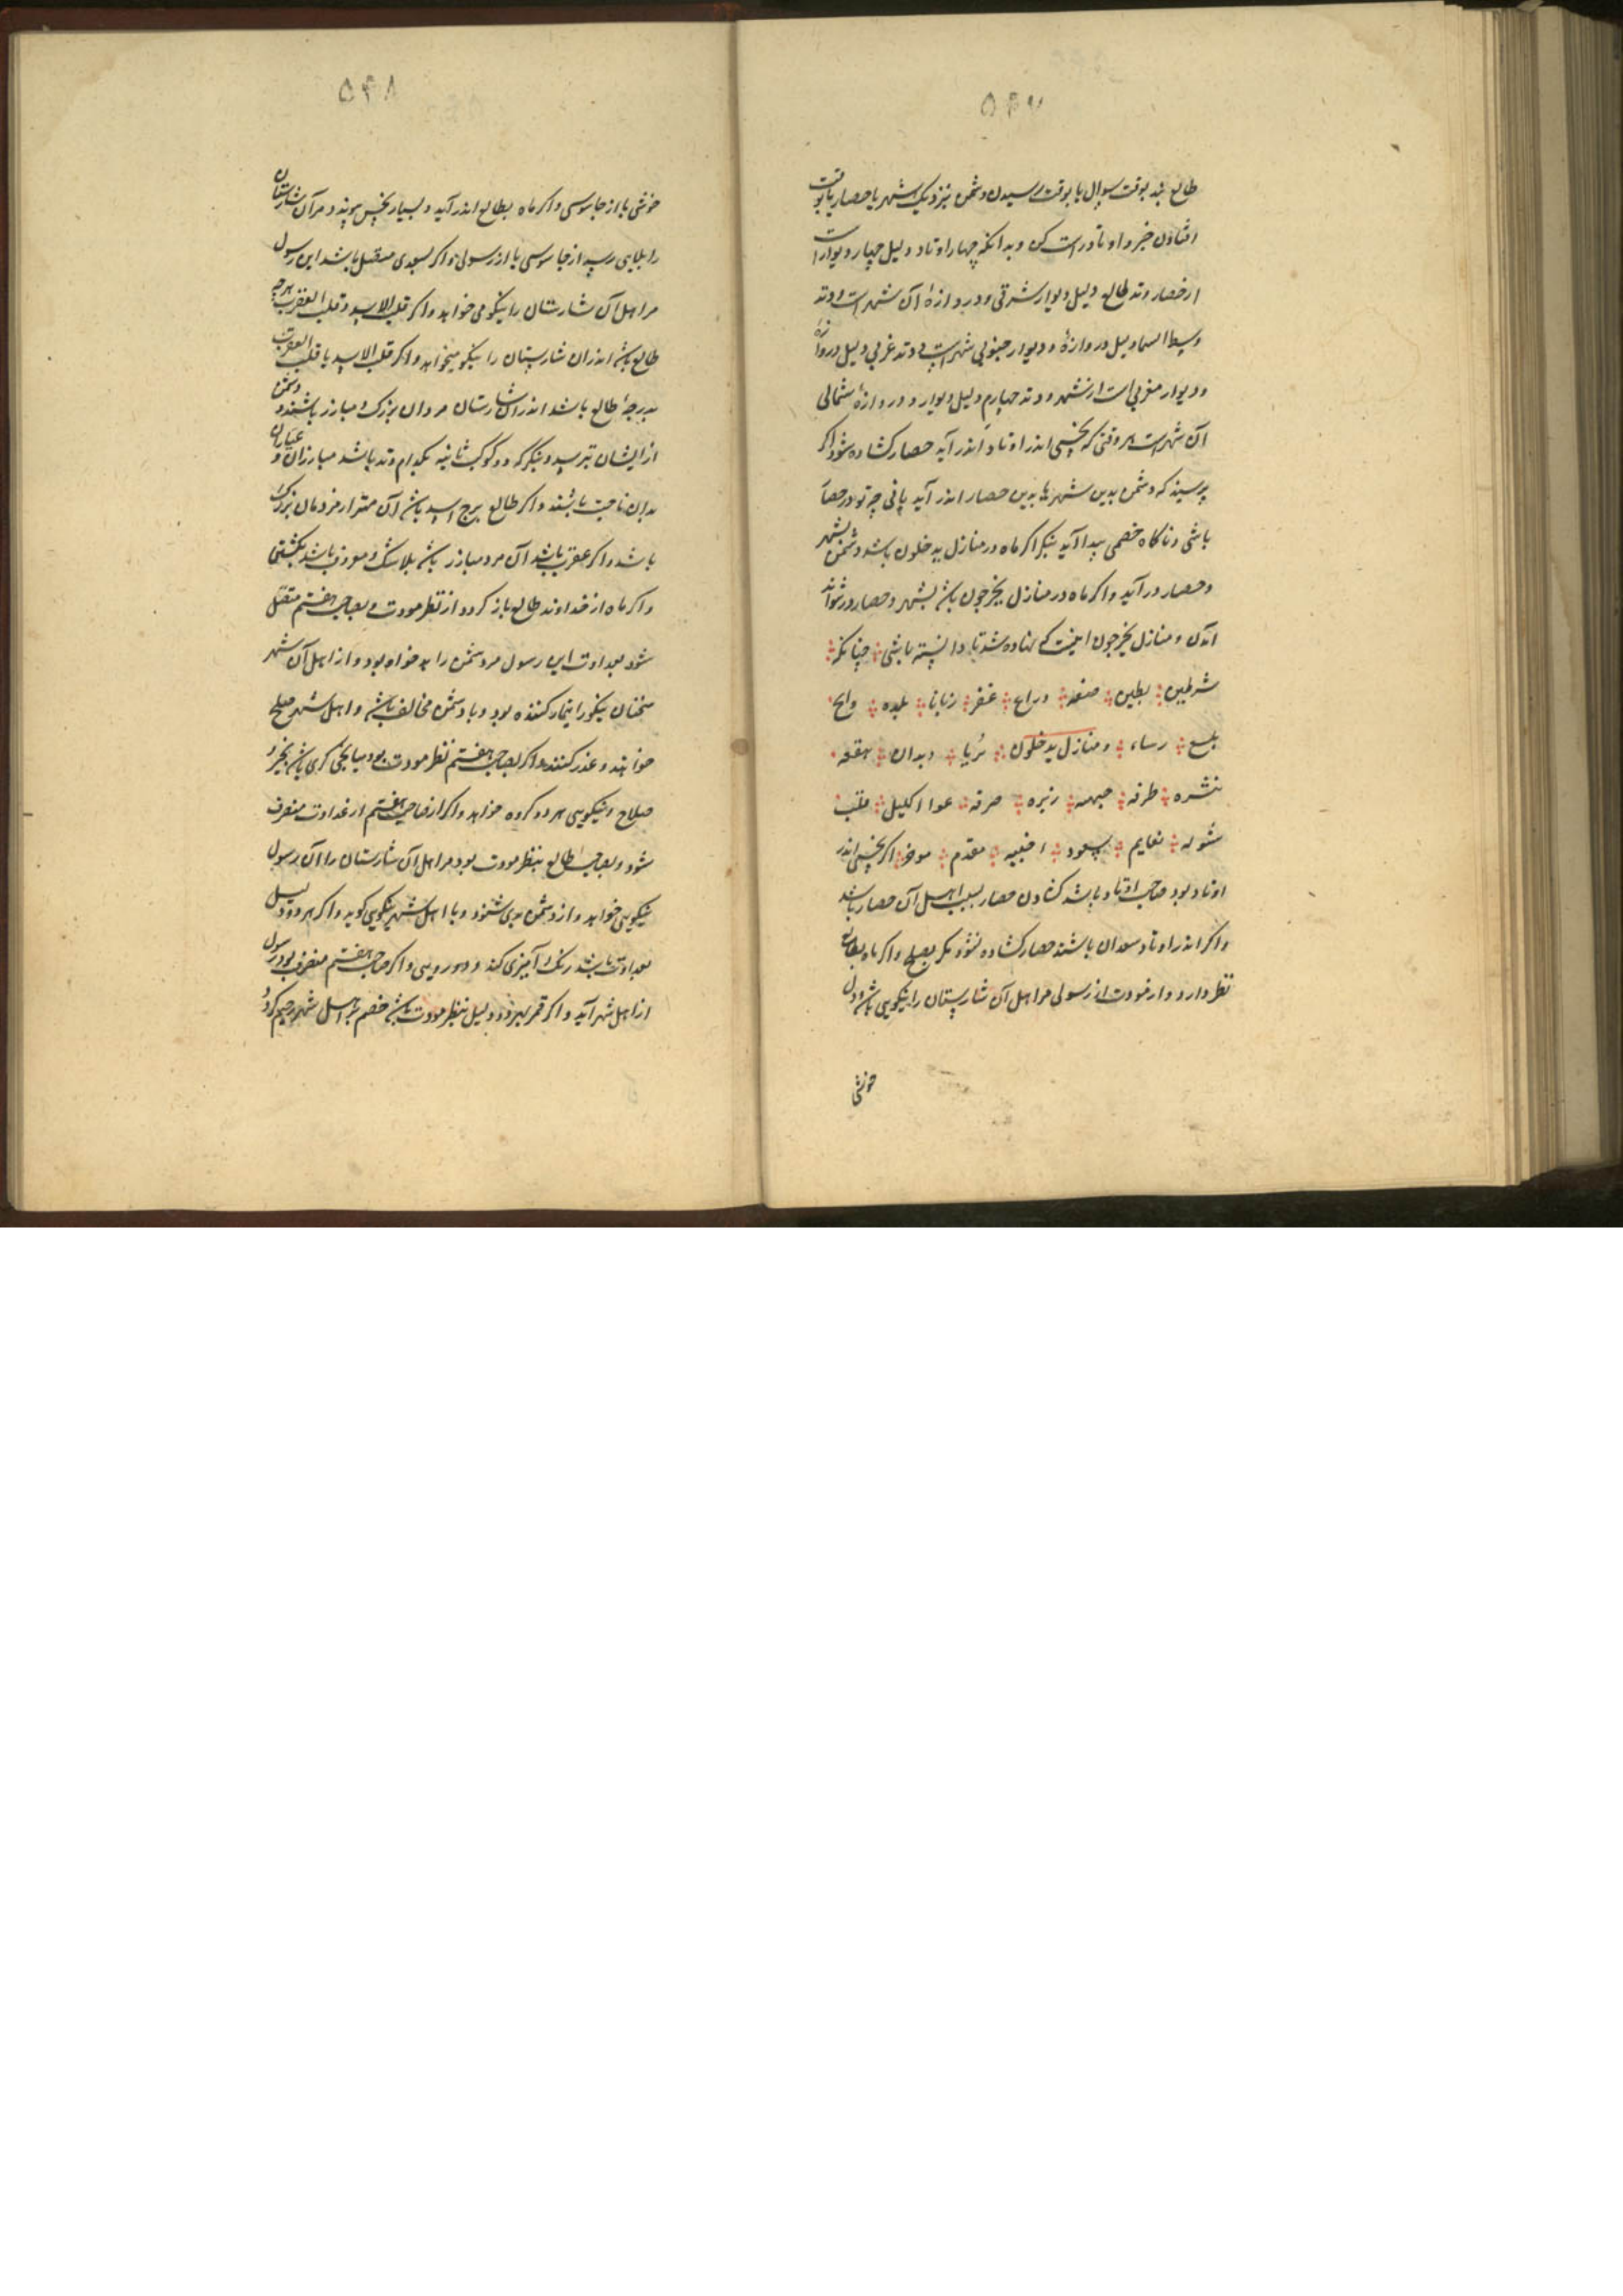 ۵۴۷
طالع بند بوقت سوال یا بوقت رسیدن دشمن بنزدیک شهر یا حصار یا بوقت
افتادن خبر و اوتاد راست کن و بدانکه چهار اوتاد دلیل چهار دیوار است
از حصار وتد طالع دلیل دیوار شرقی و دروازهٔ آن شهرست و وتد
وسط السما دلیل دروازهٔ و دیوار جنوبی شهرست و وتد غربی دلیل دروازه
و دیوار مغربی است از شهر و وتد چهارم دلیل دیوار و دروازهٔ شمالی
آن شهرست هر وقتی که نحسی اندر اوتاد اندر آید حصار کشاده شود اکر
پرسند که دشمن بدین شهر ها بدین حصار اندر آید یا نی چو تو در حصار
باشی و ناکاه خصمی پیدا آید بنکر اکر ماه در منازل یدخلون باشد دشمن بشهر
و حصار در آید و اکر ماه در منازل یخرجون باشد بشهر و حصار در نتواند
آمدن و منازل یخرجون اینست که نهاده شد تا دانسته باشی چنانکه
شرطین بطین هنعه ذراع غفر زبانا بلده ذابح
بلع رساء و منازل یدخلون ثریا دبدان هقعه
نثره طرفه جبهه زبره صرفه عوا اکلیل قلب
شوله نعایم سعود اخبیه مقدم موخر اکر نحسی اندر
اوتاد بود صاحب اوتاد باشد کشادن حصار بسبب اهل آن حصار باشد
و اکر اندر اوتاد سعدان باشند حصار کشاده نشود مکر بصلح و اکر ماه بطالع
نظر دارد و از مودت از رسولی مر اهل آن شارستان را نیکویی باشد و دل
خوشی
۵۴۸
خوشی یا از جاسوسی و اکر ماه بطالع اندر آید و بسیار نحس پیوندد مر آن شارستان
را بلایی رسد از جاسوسی یا از رسولی و اکر بسعدی متصل باشد این رسول
مر اهل آن شارستان را نیکو می خواهد و اکر قلب الاسد و قلب العقرب بدرجه
طالع باشد اندران شارستان را نیکو میخواهد و اکر قلب الاسد یا قلب العقرب
بدرجهٔ طالع باشد اندران شارستان مردان بزرک و مبارز باشند و دشمن
از ایشان بترسد و بنکر که دو کوکب ثانیه بکدام وتد باشد مبارزان و عیاران
بدان ناحیت باشند و اکر طالع برج اسد باشد آن مهتر از مردمان بزرک
باشد و اکر عقرب باشد آن مرد مبارز باشد بلاشک و معروف باشد بکشتی
و اکر ماه از خداوند طالع باز کردد از نظر مودت و بصاحب هفتم متصل
شود بعداوت این رسول مر دشمن را بد خواه بود و از اهل آن شهر
سخنان نیکو را تیمار کننده بود و با دشمن مخالف باشد و اهل شهر صلح
خواهند و عذر کنند و اکر بصاحب هفتم نظر مودت بود میانجی کری باشد بخیر و
صلاح و نیکویی هر دو کروه خواهد و اکر از صاحب هفتم از عداوت منصرف
شود و بصاحب طالع بنظر مودت بود مر اهل آن شارستان را آن رسول
نیکویی خواهد و از دشمن بدی شنود و با اهل شهر نیکویی کوید و اکر هر دو دلیل
بعداوت باشد رنک آمیزی کند و دورویی و اکر صاحب هفتم منصرف بود رسول
از اهل شهر آید و اکر قمر بهر دو دلیل بنظر مودت باشد خصم بر اهل شهر رحیم کردد